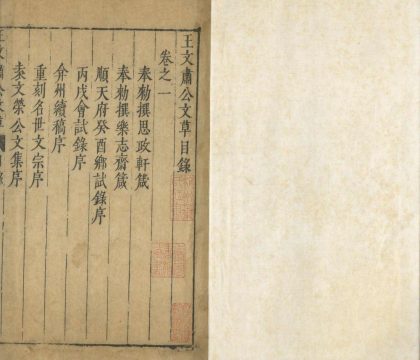 王文肅公文草目錄
卷之一
奉勑撰思政軒箴
奉勑撰樂志齋箴
順天府癸酉鄉試錄序
丙戌會試錄序
弇州續稿序
重刻名世文宗序
袁文榮公文集序
王文肅公文草